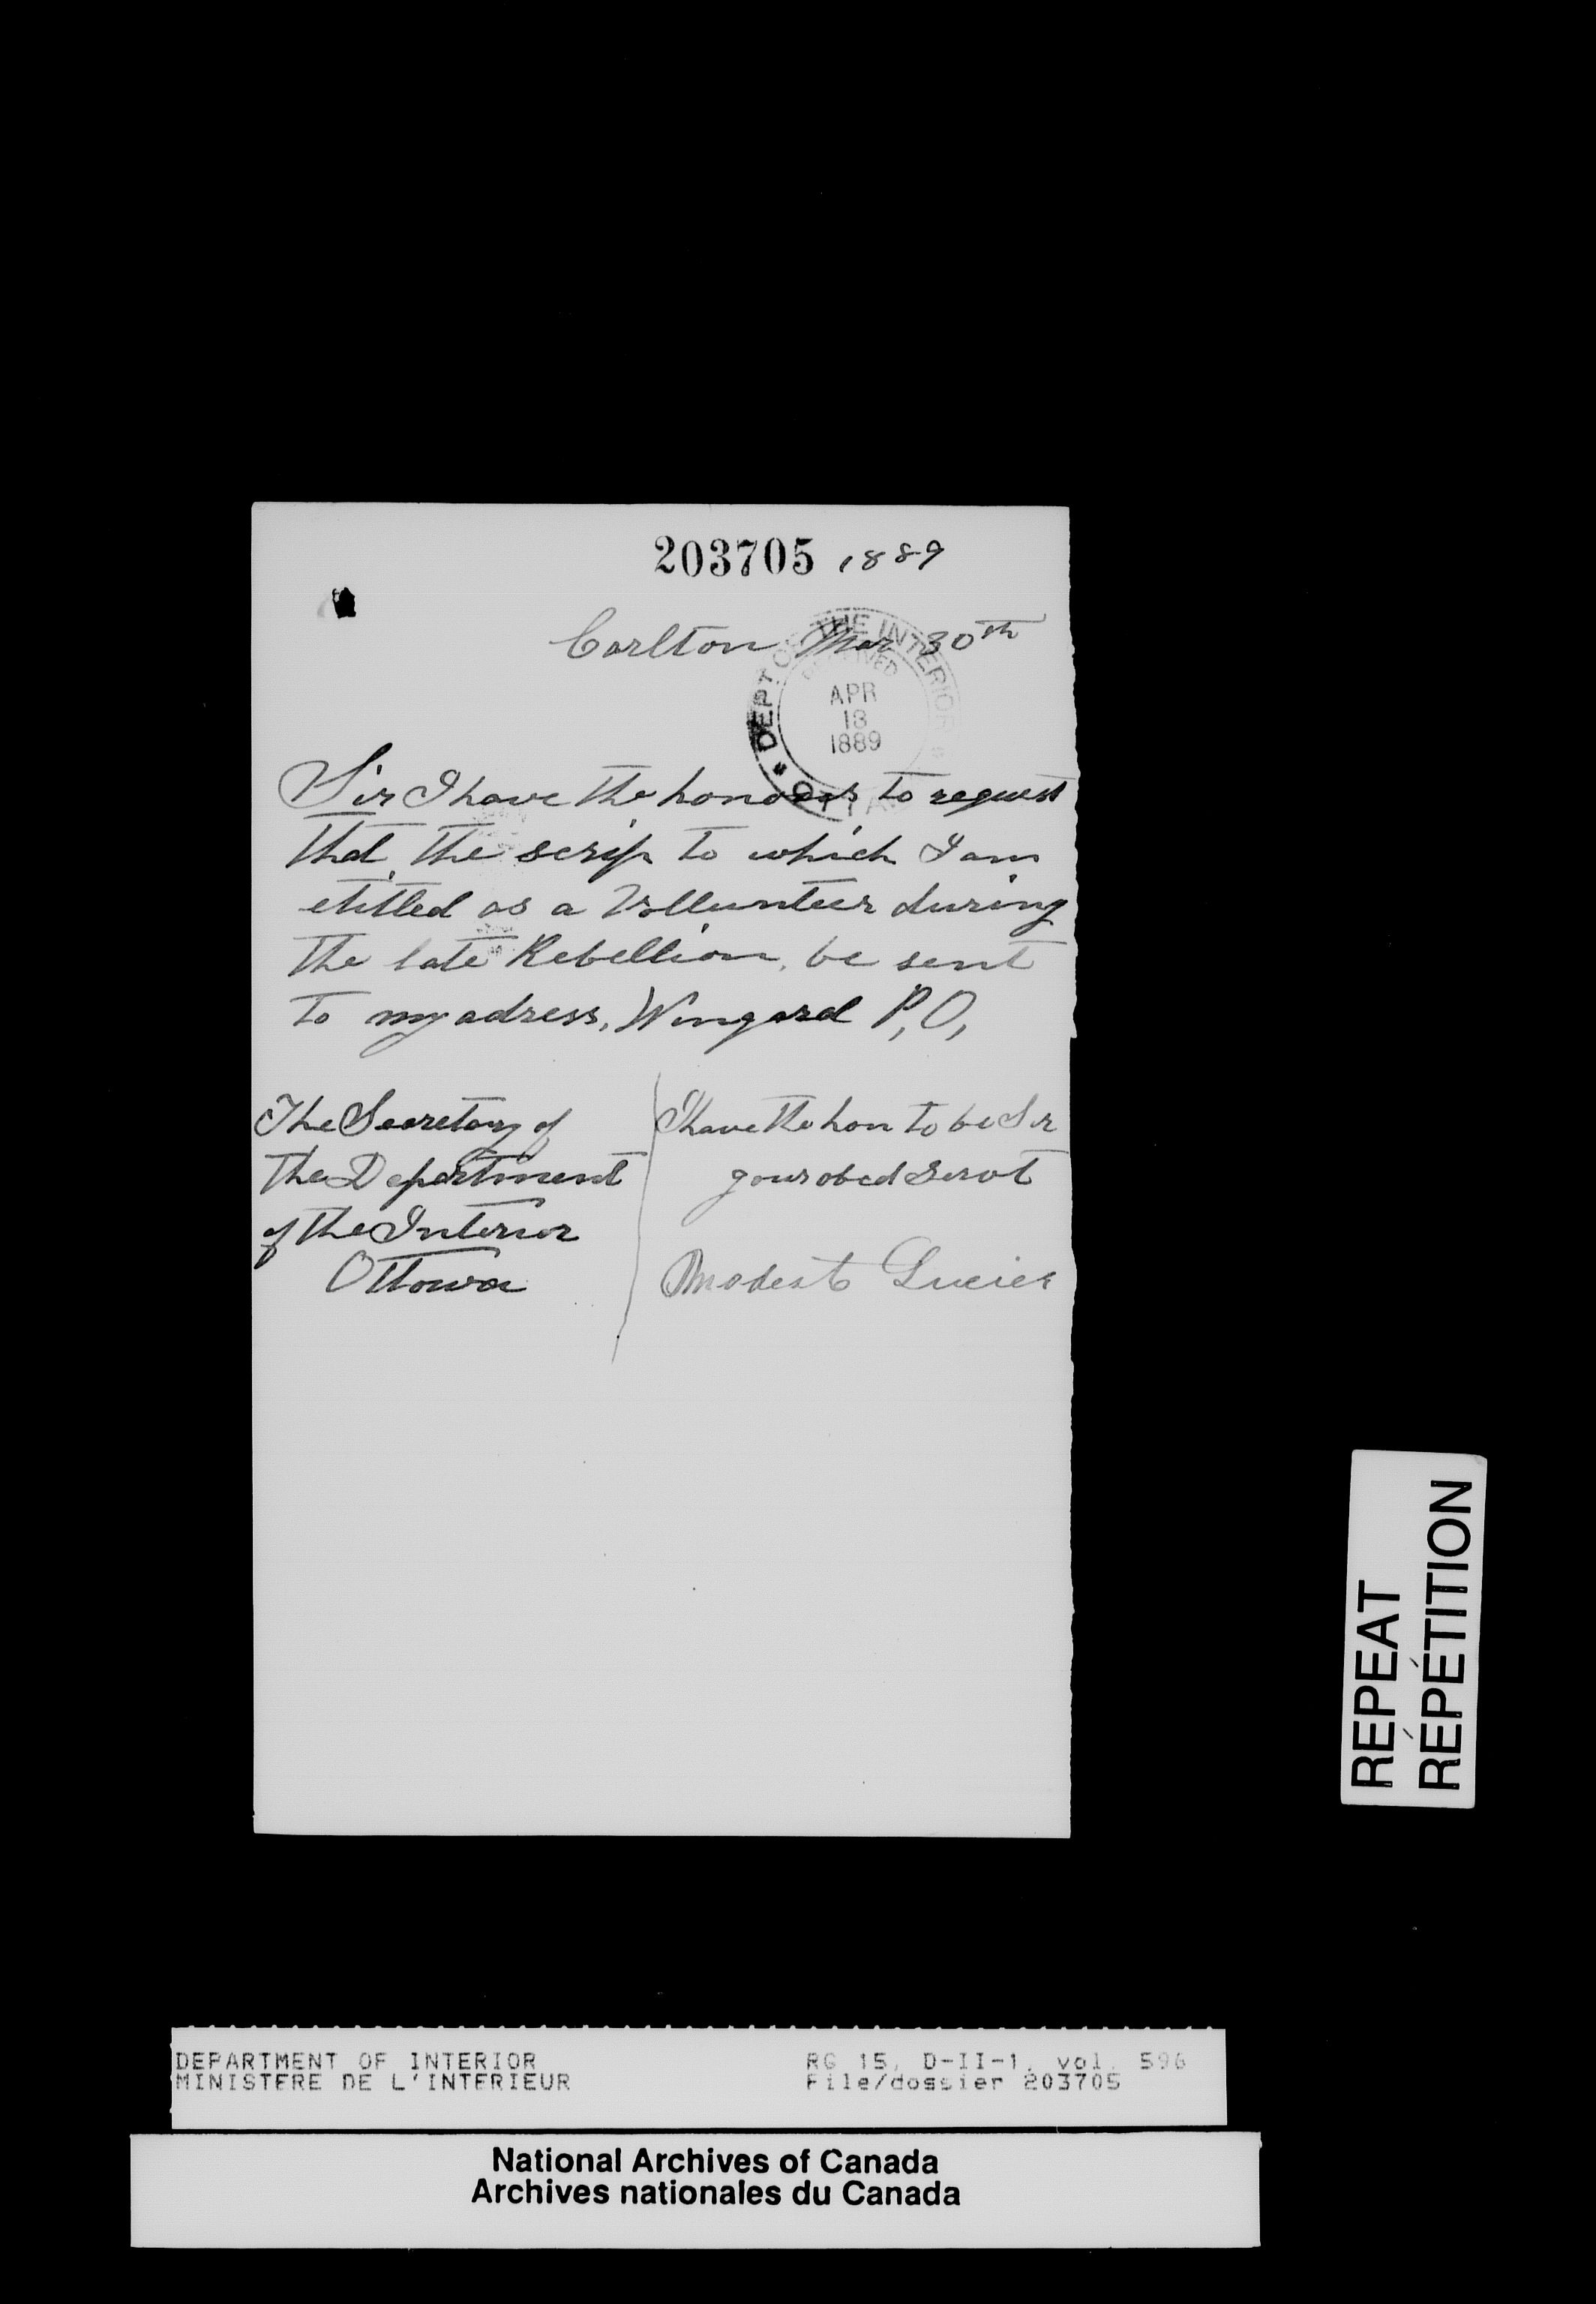 203705 1889
Carlton Mar 30th
DEPT OF THE INTERIOR
RECEIVED
APR
13
1889
OTTAWA
Sir I have the honour to request
that the scrip to which I am
etitled as a Vollunteer during
the late Rebellion, be sent
to my adress, Wingard P,O,
The Secretary of
The Department
of the Interior
Ottowa
I have the hon to be Sir
your obed servt
Modest Lucier
REPEAT
RÉPÉTITION
DEPARTMENT OF INTERIOR
MINISTERE DE L'INTERIEUR
RG 15, D-II-1, vol. 596
File/dossier 203705
National Archives of Canada
Archives nationales du Canada